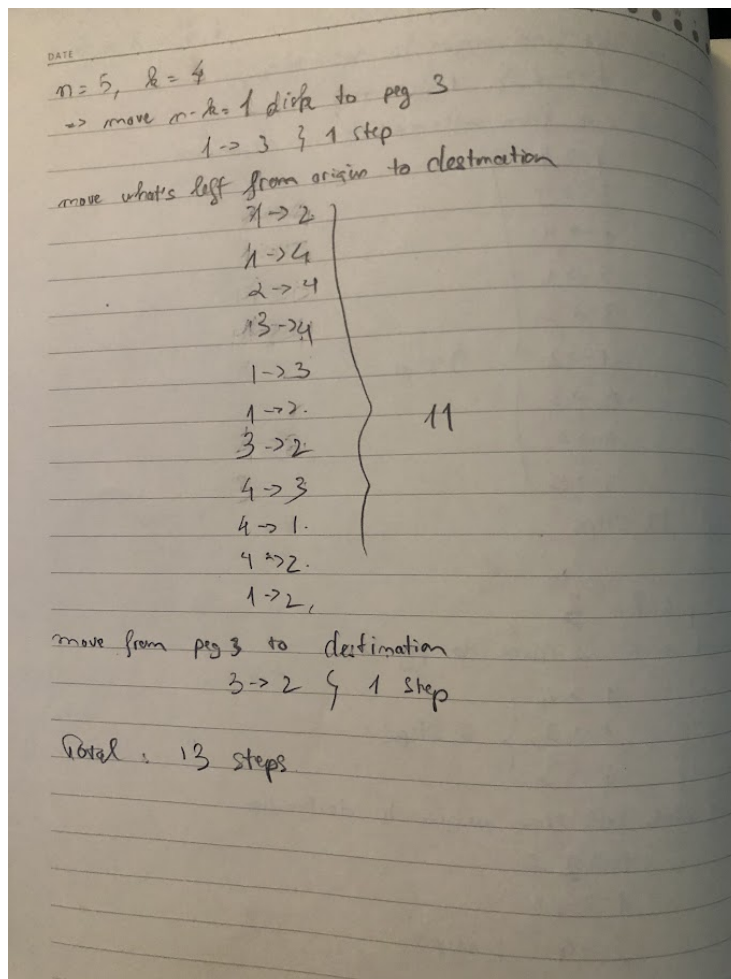 DATE
n = 5, k = 4
=> move n-k = 1 disk to peg 3
1 -> 3 } 1 step
move what's left from origin to destination
1 -> 2
1 -> 4
2 -> 4
3 -> 4
1 -> 3
1 -> 2.
3 -> 2
4 -> 3
4 -> 1.
4 -> 2.
1 -> 2,
11
move from peg 3 to destination
3 -> 2 } 1 step
Total : 13 steps